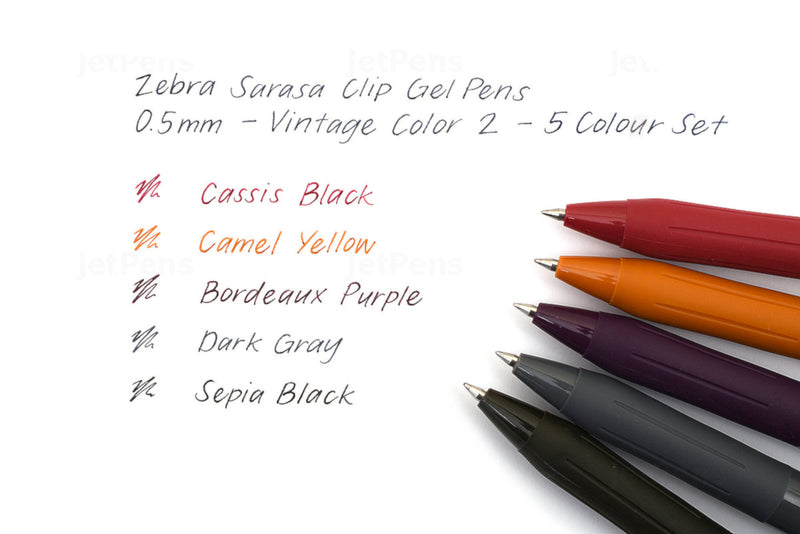 Zebra Sarasa Clip Gel Pens
0.5mm - Vintage Color 2 - 5 Colour Set
Cassis Black
Camel Yellow
Bordeaux Purple
Dark Gray
Sepia Black
JetPens
JetPens
JetPens
JetPens